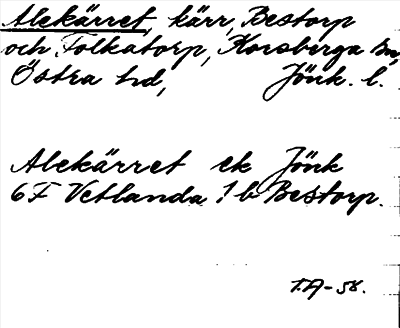 Alekärret, kärr, Bestorp
och Folkatorp, Korsberga sn,
Östra hd, Jönk. l.
Alekärret ek Jönk
6F Vetlanda 1b Bestorp.
T.A-58.